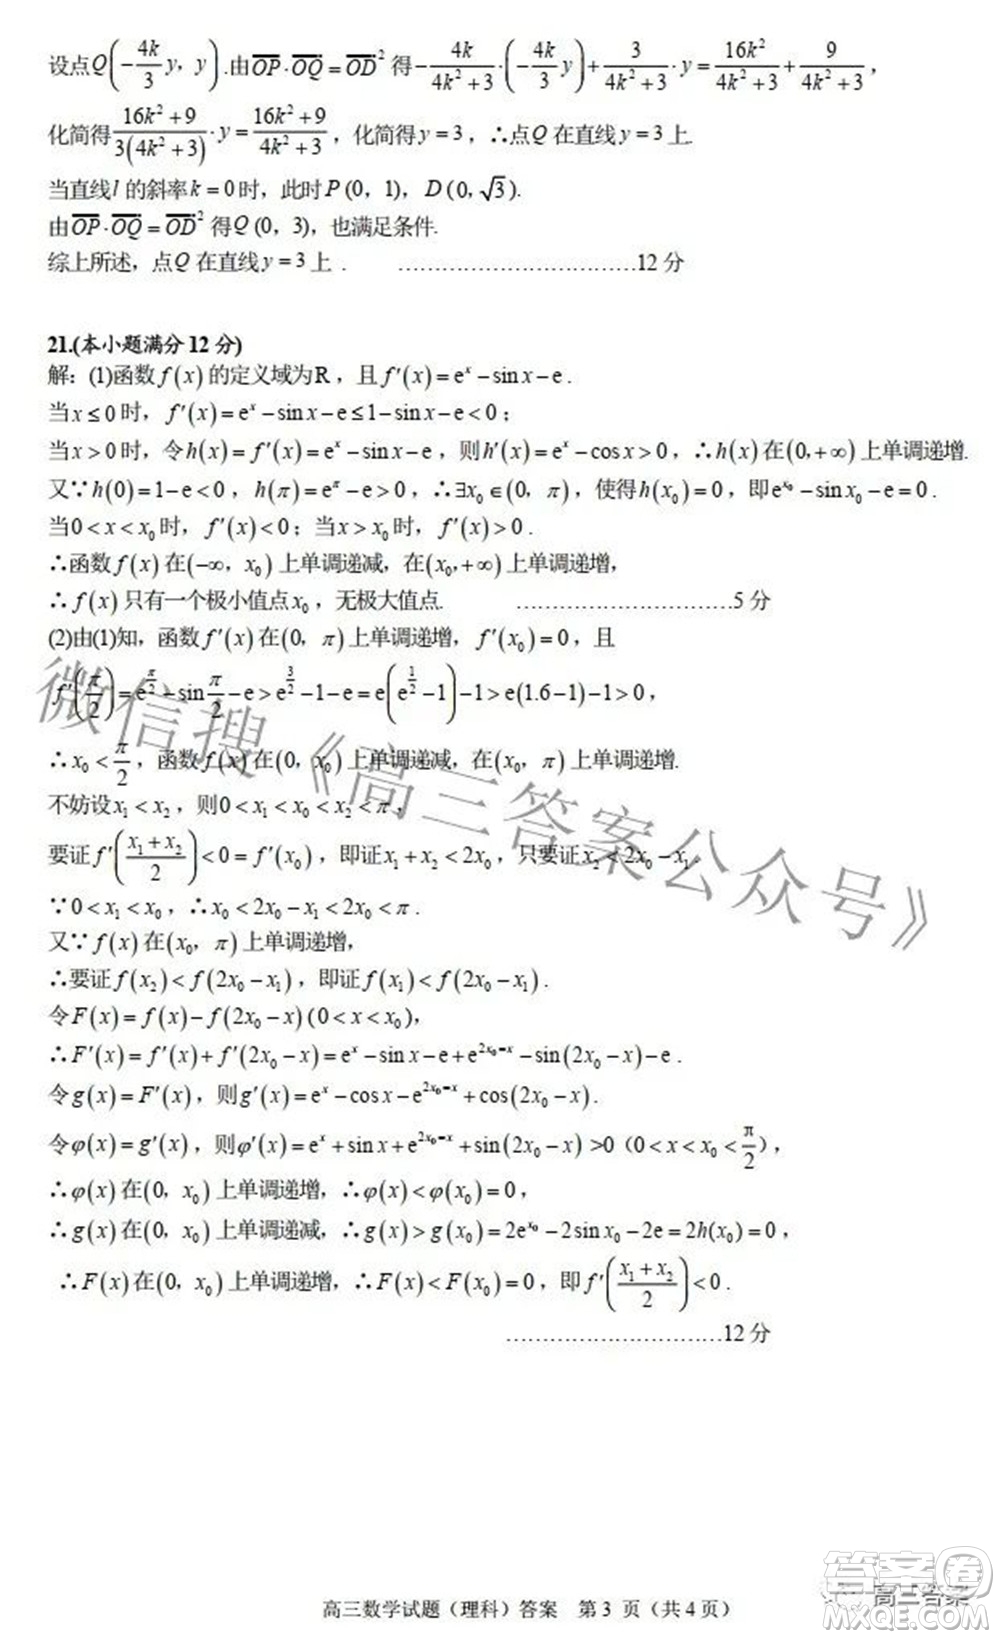 设点Q(-4k/3 y, y).由OP·OQ=OD²得-4k/(4k²+3)·(-4k/3 y)+3/(4k²+3)·y=16k²/(4k²+3)+9/(4k²+3),
化简得(16k²+9)/(3(4k²+3))·y=(16k²+9)/(4k²+3),化简得y=3,∴点Q在直线y=3上.
当直线l的斜率k=0时,此时P(0,1),D(0,√3).
由OP·OQ=OD²得Q(0,3),也满足条件.
综上所述,点Q在直线y=3上. ………………………………12分
21.(本小题满分12分)
解:(1)函数f(x)的定义域为R,且f′(x)=eˣ-sinx-e.
当x≤0时,f′(x)=eˣ-sinx-e≤1-sinx-e<0;
当x>0时,令h(x)=f′(x)=eˣ-sinx-e,则h′(x)=eˣ-cosx>0,∴h(x)在(0,+∞)上单调递增.
又∵h(0)=1-e<0,h(π)=e^π-e>0,∴∃x₀∈(0,π),使得h(x₀)=0,即e^(x₀)-sinx₀-e=0.
当0<x<x₀时,f′(x)<0;当x>x₀时,f′(x)>0.
∴函数f(x)在(-∞,x₀)上单调递减,在(x₀,+∞)上单调递增,
∴f(x)只有一个极小值点x₀,无极大值点. …………………………5分
(2)由(1)知,函数f′(x)在(0,π)上单调递增,f′(x₀)=0,且
f′(π/2)=e^(π/2)-sin π/2-e>e^(3/2)-1-e=e(e^(1/2)-1)-1>e(1.6-1)-1>0,
∴x₀<π/2,函数f(x)在(0,x₀)上单调递减,在(x₀,π)上单调递增.
不妨设x₁<x₂,则0<x₁<x₀<x₂<π,
要证f′((x₁+x₂)/2)<0=f′(x₀),即证x₁+x₂<2x₀,只要证x₂<2x₀-x₁.
∵0<x₁<x₀,∴x₀<2x₀-x₁<2x₀<π.
又∵f(x)在(x₀,π)上单调递增,
∴要证f(x₂)<f(2x₀-x₁),即证f(x₁)<f(2x₀-x₁).
令F(x)=f(x)-f(2x₀-x)(0<x<x₀),
∴F′(x)=f′(x)+f′(2x₀-x)=eˣ-sinx-e+e^(2x₀-x)-sin(2x₀-x)-e.
令g(x)=F′(x),则g′(x)=eˣ-cosx-e^(2x₀-x)+cos(2x₀-x).
令φ(x)=g′(x),则φ′(x)=eˣ+sinx+e^(2x₀-x)+sin(2x₀-x)>0(0<x<x₀<π/2),
∴φ(x)在(0,x₀)上单调递增,∴φ(x)<φ(x₀)=0,
∴g(x)在(0,x₀)上单调递减,∴g(x)>g(x₀)=2e^(x₀)-2sinx₀-2e=2h(x₀)=0,
∴F(x)在(0,x₀)上单调递增,∴F(x)<F(x₀)=0,即f′((x₁+x₂)/2)<0.
…………………………12分
微信搜《高三答案公众号》
高三数学试题(理科)答案 第3页(共4页)
高三答案
答案卷
MXQE.COM